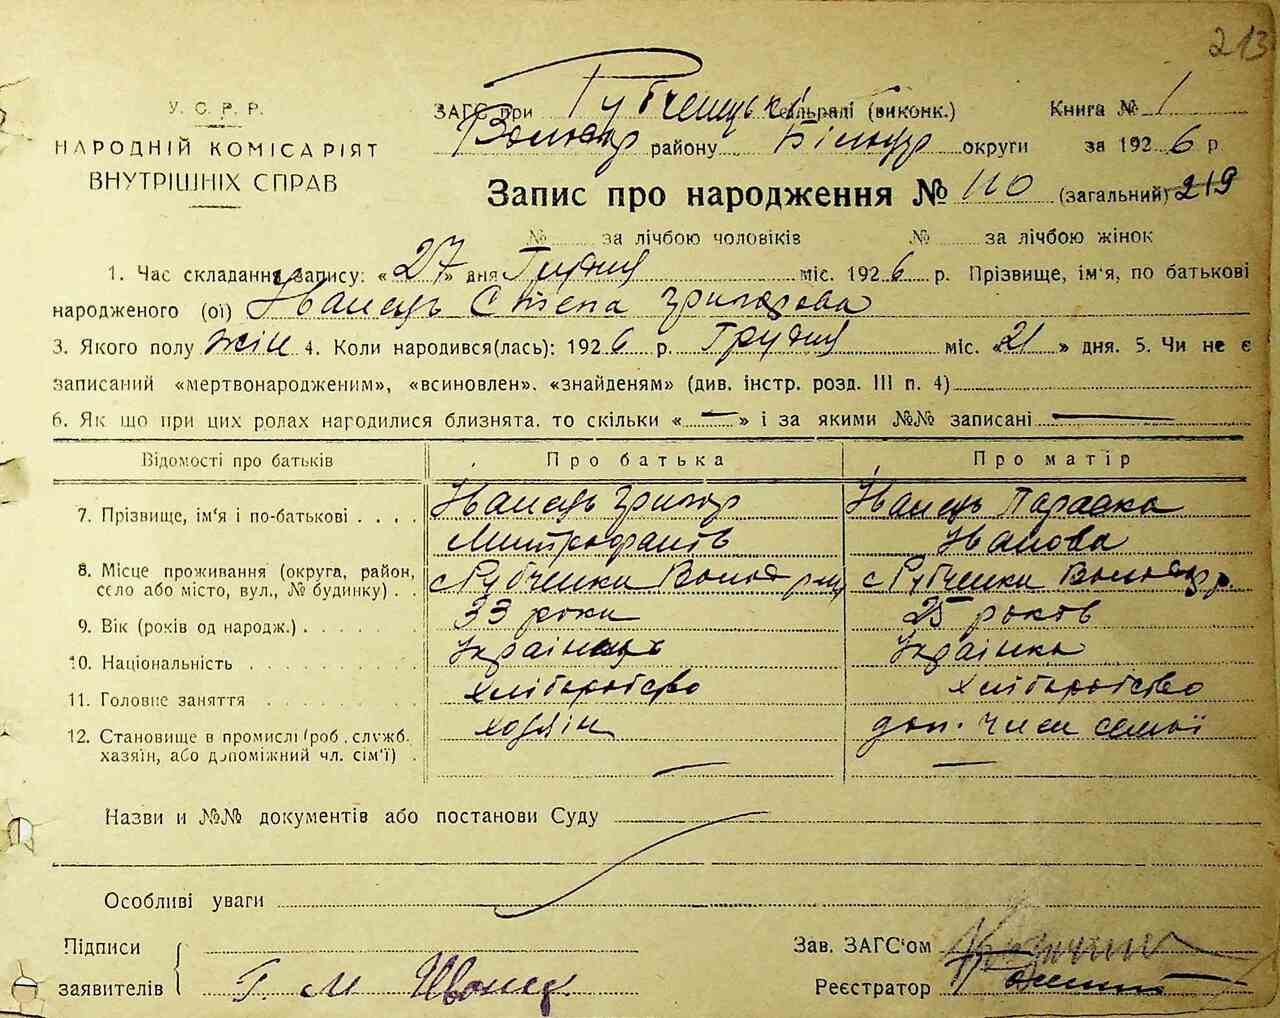 213
У. С. Р. Р.
НАРОДНІЙ КОМІСАРІЯТ
ВНУТРІШНІХ СПРАВ
ЗАГС при Рубченській сільраді (виконк.) Книга № 1
Волод району Білоцер округи за 1926 р.
Запис про народження № 110 (загальний) 219
№ за лічбою чоловіків № за лічбою жінок
1. Час складання запису: «27» дня Грудня міс. 1926 р. Прізвище, ім'я, по батькові
народженого (ої) Іванець Степа Григорова
3. Якого полу жін 4. Коли народився(лась): 1926 р. Грудня міс. «21» дня. 5. Чи не є
записаний «мертвонародженим», «всиновлен», «знайденям» (див. інстр. розд. III п. 4)
6. Як що при цих ролах нагодилися близнята. то скільки «—» і за якими №№ записані —
Відомості про батьків Про батька Про матір
7. Прізвище, ім'я і по-батькові . . . . Іванець Григор Іванець Параска
Митрофанів Іванова
8. Місце проживання (округа, район, с Рубченки Волод р-ну с Рубченки Волод р.
село або місто, вул., № будинку) . .
9. Вік (років од народж.) . . . . . . 33 роки 25 років
10. Національність . . . . . . . . Українець Українка
11. Головне заняття . . . . . . . хліборобство хліборобство
12. Становище в промислі (роб., служб. хозяін доп. член семьї
хазяїн, або допоміжний чл. сім'ї) . — —
Назви и №№ документів або постанови Суду
Особливі уваги
Підписи Зав. ЗАГС'ом
заявителів Г. М Іванец Реєстратор